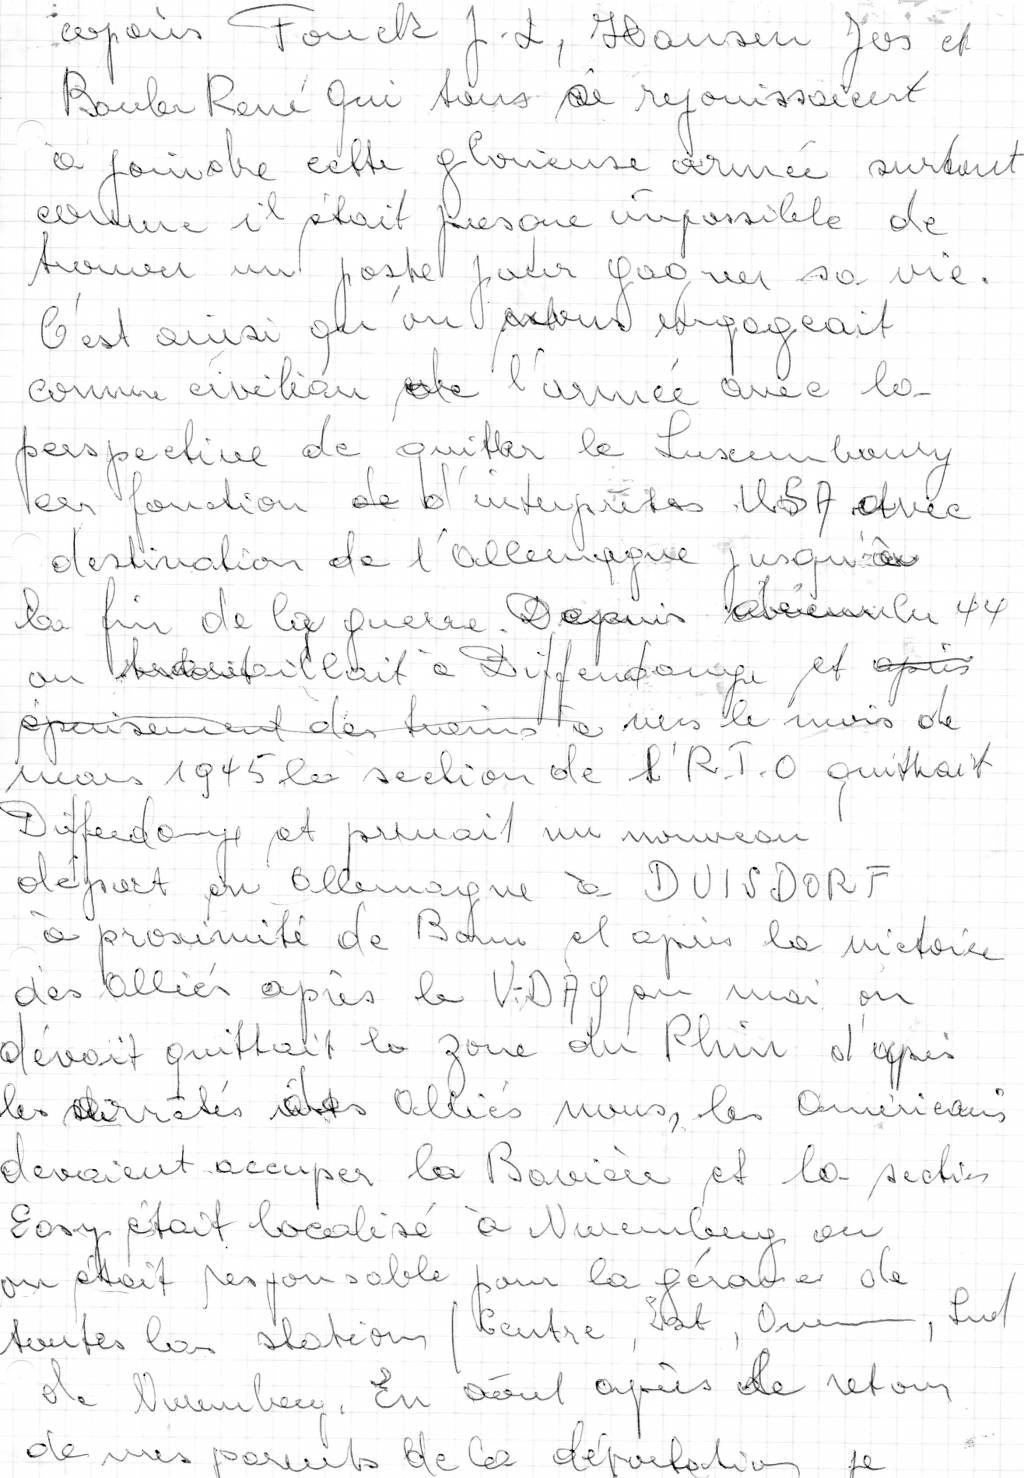 copains Fouck J.L, Hansen Jos et
Bouler René qui tous se rejouissaient
à joindre cette glorieuse armée surtout
comme il était presque impossible de
trouver un poste pour gagner sa vie.
C'est ainsi qu'on engageait
comme civilian de l'armée avec la
perspective de quitter le Luxembourg
en fonction de d'interprètes USA avec
destination de l'Allemagne jusqu'à
la fin de la guerre. Depuis 44
on à Differdange et après
épuisement des trains à vers le mois de
mars 1945 la section de l'R.T.O quittait
Differdange et prenait un nouveau
départ en Allemagne à DUISDORF
à proximité de Bonn et après la victoire
des Alliés après le V-DAY en mai on
dévait quittait la zone du Rhin d'après
les arrêtés des Alliés nous, les Américains
devaient occuper la Bavière et la section
Easy était localisé à Nuremberg ou
on était responsable pour la gérance de
toutes les stations (Centre, Est, Ouest, Sud
de Nuremberg. En août après le retour
de mes parents de la déportation je